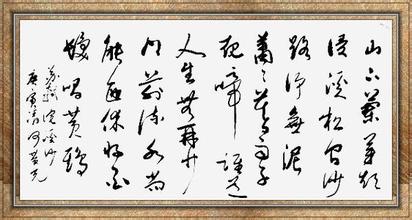 山下蘭芽短
浸溪松间沙
路浄無泥
萧々暮雨子
规啼誰道
人生無再少
门前流水尚
能西休将白
髮唱黄鸡
苏轼浣溪沙
庚寅清河